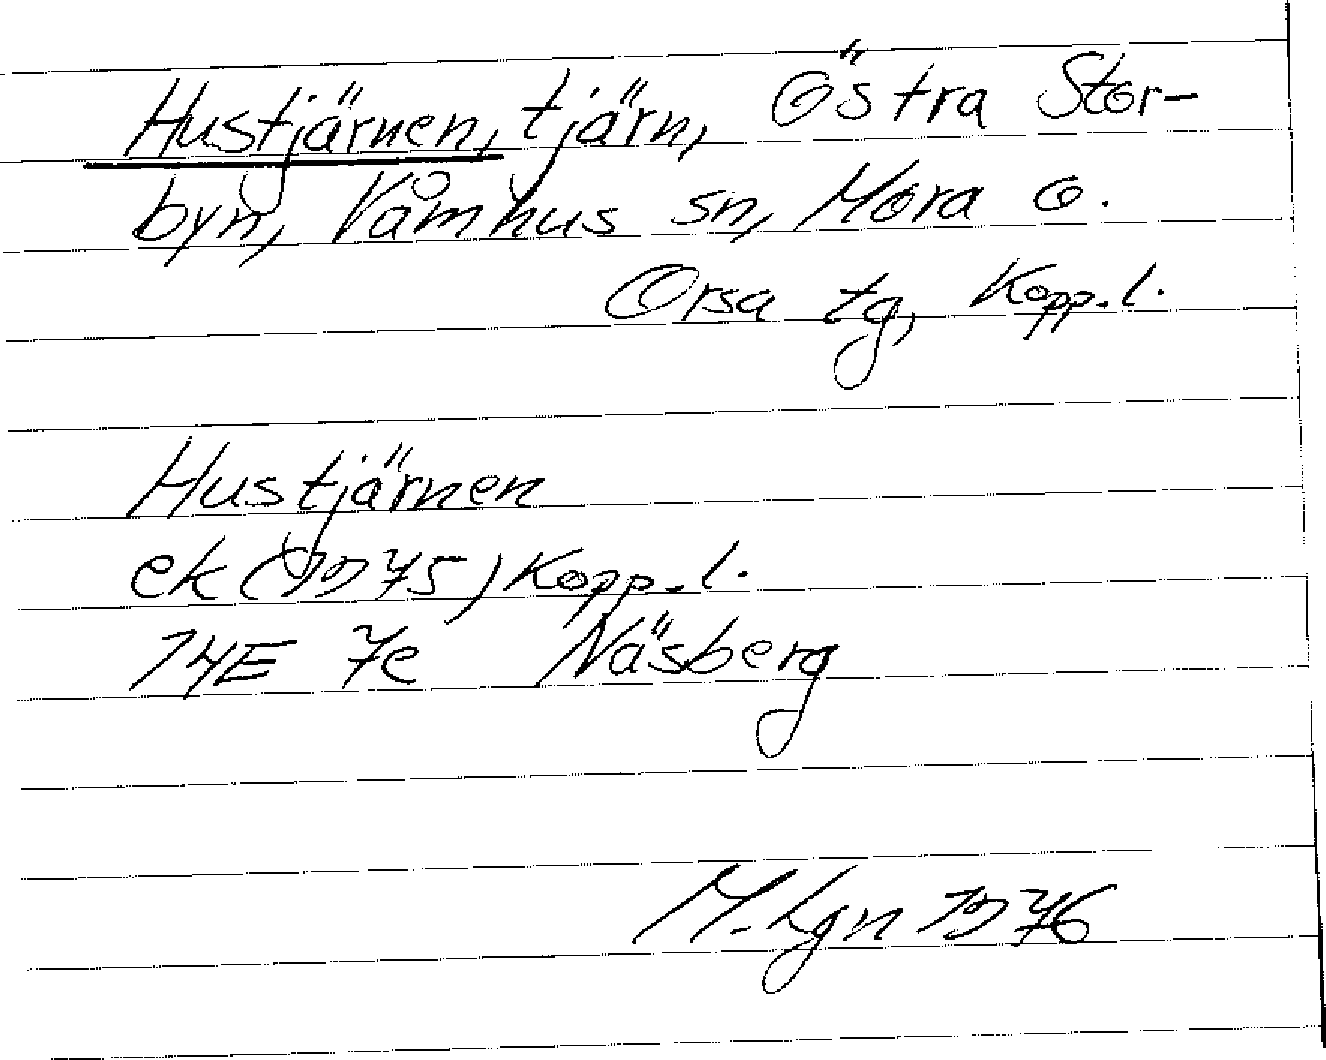 Hustjärnen, tjärn, Östra Stor-
byn, Våmhus sn, Mora o.
Orsa tg, Kopp. l.
Hustjärnen
ek (1975) Kopp. l.
14E 7e Näsberg
M. Lgn 1976